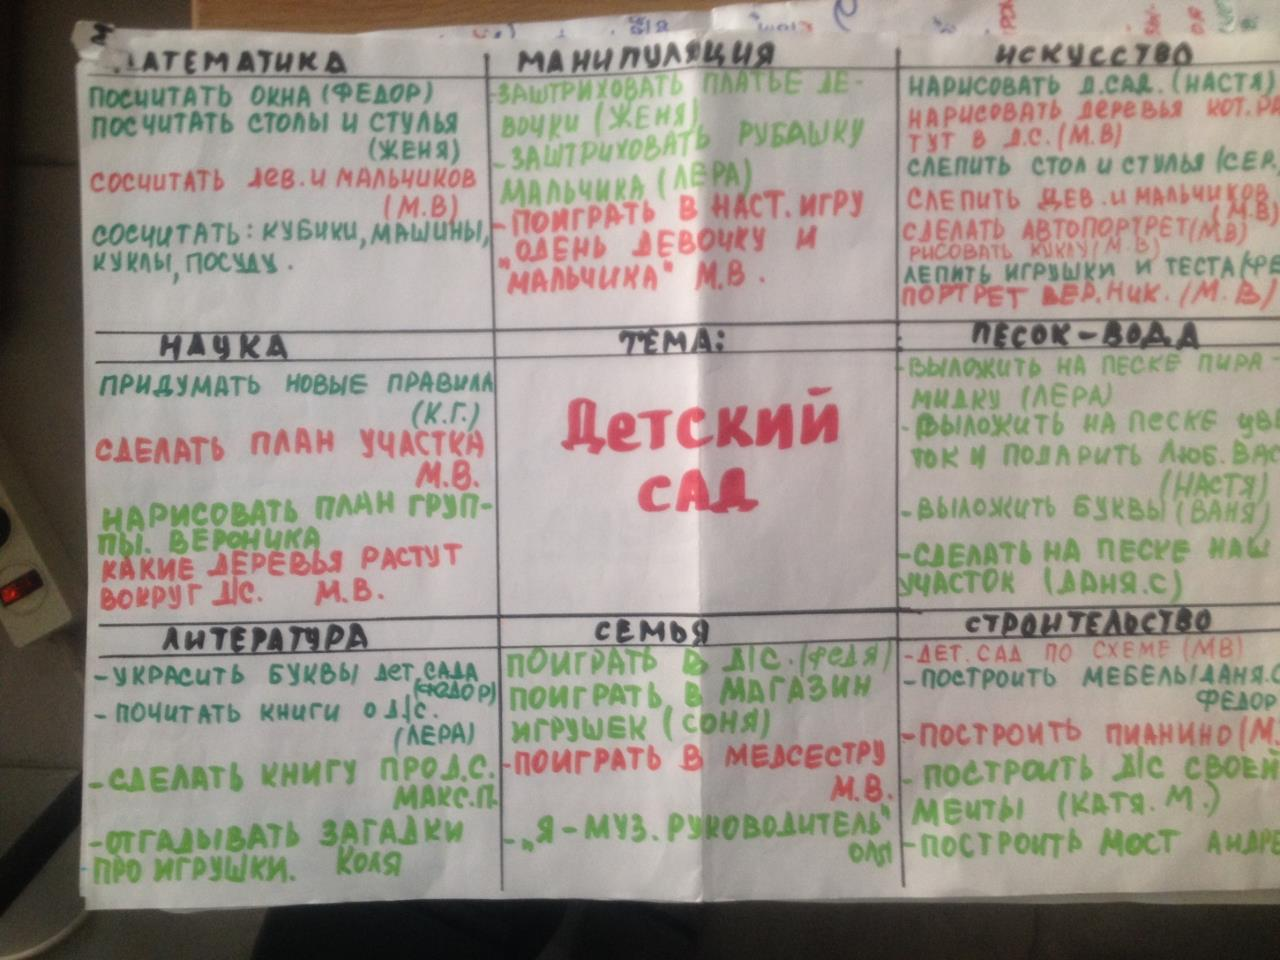 МАТЕМАТИКА
ПОСЧИТАТЬ ОКНА (ФЕДОР)
ПОСЧИТАТЬ СТОЛЫ И СТУЛЬЯ
(ЖЕНЯ)
СОСЧИТАТЬ ДЕВ. И МАЛЬЧИКОВ
(М.В)
СОСЧИТАТЬ: КУБИКИ, МАШИНЫ,
КУКЛЫ, ПОСУДУ.
МАНИПУЛЯЦИЯ
-ЗАШТРИХОВАТЬ ПЛАТЬЕ ДЕ-
ВОЧКИ (ЖЕНЯ)
-ЗАШТРИХОВАТЬ РУБАШКУ
МАЛЬЧИКА (ЛЕРА)
-ПОИГРАТЬ В НАСТ. ИГРУ
"ОДЕНЬ ДЕВОЧКУ И
МАЛЬЧИКА" М.В.
ИСКУССТВО
НАРИСОВАТЬ Д.САД. (НАСТЯ)
НАРИСОВАТЬ ДЕРЕВЬЯ КОТ. РА
ТУТ В Д.С. (М.В)
СЛЕПИТЬ СТОЛ И СТУЛЬЯ (СЕР.
СЛЕПИТЬ ДЕВ. И МАЛЬЧИКОВ
(М.В)
СДЕЛАТЬ АВТОПОРТРЕТ (М.В)
РИСОВАТЬ КУКЛУ (М.В)
ЛЕПИТЬ ИГРУШКИ И ТЕСТА (ФЕ
ПОРТРЕТ ВЕР. НИК. (М.В)
НАУКА
ПРИДУМАТЬ НОВЫЕ ПРАВИЛА
(К.Г.)
СДЕЛАТЬ ПЛАН УЧАСТКА
М.В.
НАРИСОВАТЬ ПЛАН ГРУП-
ПЫ. ВЕРОНИКА
КАКИЕ ДЕРЕВЬЯ РАСТУТ
ВОКРУГ Д/С. М.В.
ТЕМА:
Детский
САД
ПЕСОК-ВОДА
-ВЫЛОЖИТЬ НА ПЕСКЕ ПИРА-
МИДКУ (ЛЕРА)
-ВЫЛОЖИТЬ НА ПЕСКЕ ЦВЕ
ТОК И ПОДАРИТЬ ЛЮБ. ВАС
(НАСТЯ)
-ВЫЛОЖИТЬ БУКВЫ (ВАНЯ)
-СДЕЛАТЬ НА ПЕСКЕ НАШ
УЧАСТОК (ДАНЯ.С)
ЛИТЕРАТУРА
-УКРАСИТЬ БУКВЫ ДЕТ.САДА
(ФЕДОР)
-ПОЧИТАТЬ КНИГИ О Д/С.
(ЛЕРА)
-СДЕЛАТЬ КНИГУ ПРО Д.С.
МАКС.П.
-ОТГАДЫВАТЬ ЗАГАДКИ
ПРО ИГРУШКИ. КОЛЯ
СЕМЬЯ
ПОИГРАТЬ В Д/С. (ФЕДЯ)
ПОИГРАТЬ В МАГАЗИН
ИГРУШЕК (СОНЯ)
-ПОИГРАТЬ В МЕДСЕСТРУ
М.В.
-"Я-МУЗ. РУКОВОДИТЕЛЬ"
ОЛЯ
СТРОИТЕЛЬСТВО
-ДЕТ. САД ПО СХЕМЕ (МВ)
-ПОСТРОИТЬ МЕБЕЛЬ ДАНЯ.С
ФЕДОР
-ПОСТРОИТЬ ПИАНИНО (М.
-ПОСТРОИТЬ Д/С СВОЕЙ
МЕЧТЫ (КАТЯ.М.)
-ПОСТРОИТЬ МОСТ АНДРЕ